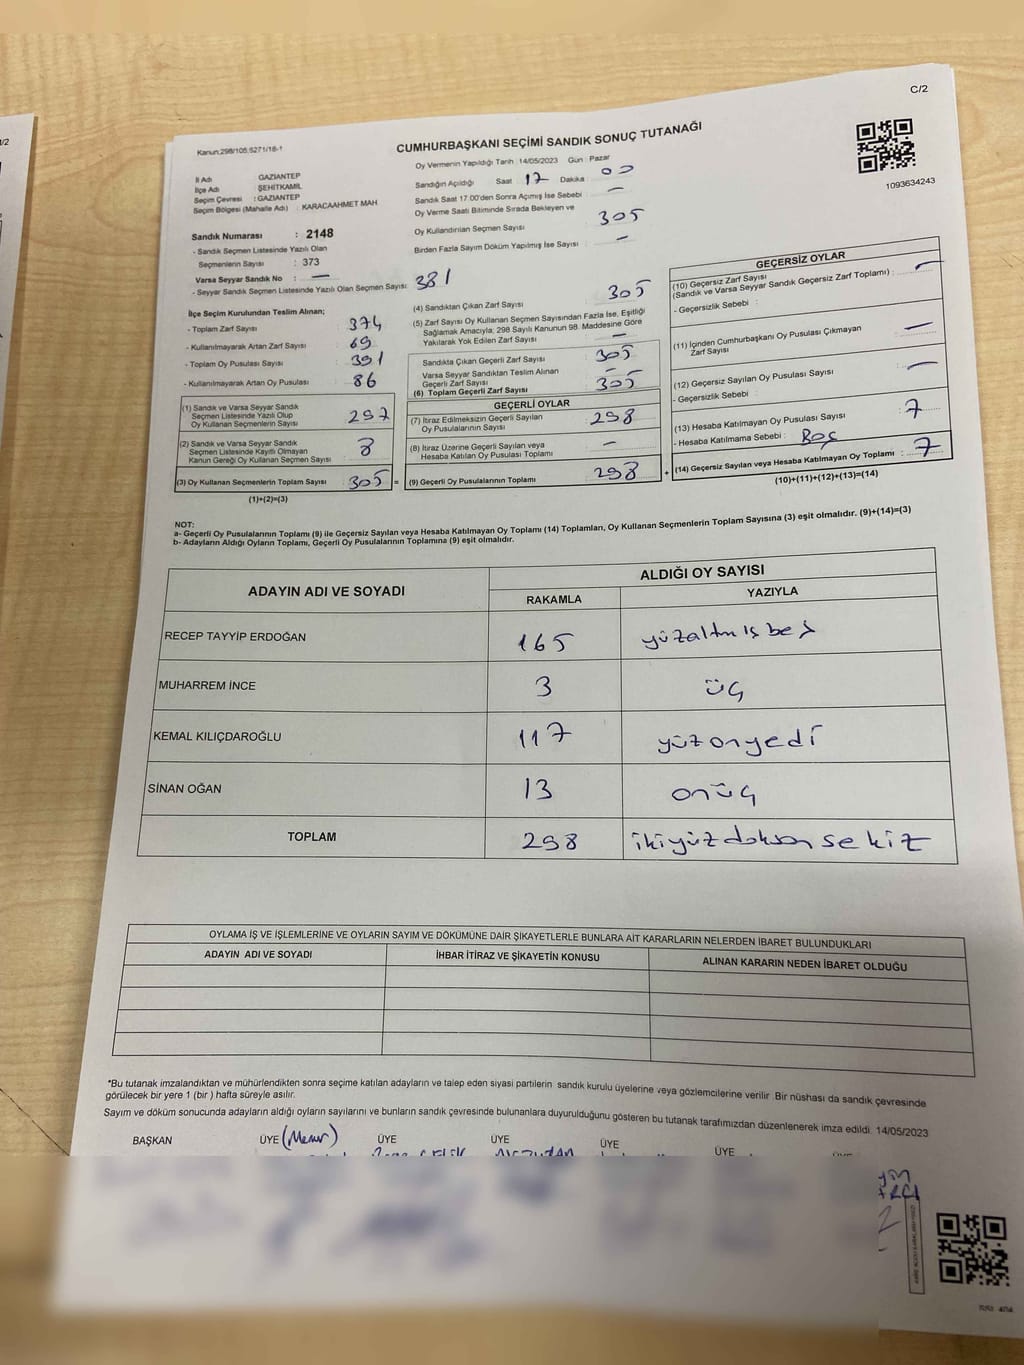 C/2
Kanun:298/105,6271/18-1
CUMHURBAŞKANI SEÇİMİ SANDIK SONUÇ TUTANAĞI
1093634243
İl Adı GAZIANTEP
İlçe Adı : ŞEHİTKAMİL
Seçim Çevresi : GAZIANTEP
Seçim Bölgesi (Mahalle Adı) : KARACAAHMET MAH
Oy Vermenin Yapıldığı Tarih : 14/05/2023 Gün : Pazar
Sandığın Açıldığı Saat 17 Dakika : 00
Sandık Saat 17.00'den Sonra Açımış İse Sebebi : —
Oy Verme Saati Bitiminde Sırada Bekleyen ve
Oy Kullandırılan Seçmen Sayısı : 305
Birden Fazla Sayım Döküm Yapılmış İse Sayısı : —
Sandık Numarası : 2148
- Sandık Seçmen Listesinde Yazılı Olan
Seçmenlerin Sayısı : 373
Varsa Seyyar Sandık No : —
- Seyyar Sandık Seçmen Listesinde Yazılı Olan Seçmen Sayısı: 381
İlçe Seçim Kurulundan Teslim Alınan;
- Toplam Zarf Sayısı : 374
- Kullanılmayarak Artan Zarf Sayısı : 69
- Toplam Oy Pusulası Sayısı : 391
- Kullanılmayarak Artan Oy Pusulası : 86
(1) Sandık ve Varsa Seyyar Sandık
Seçmen Listesinde Yazılı Olup
Oy Kullanan Seçmenlerin Sayısı : 297
(2) Sandık ve Varsa Seyyar Sandık
Seçmen Listesinde Kayıtlı Olmayan
Kanun Gereği Oy Kullanan Seçmen Sayısı : 8
(3) Oy Kullanan Seçmenlerin Toplam Sayısı : 305 =
(1)+(2)=(3)
(4) Sandıktan Çıkan Zarf Sayısı : 305
(5) Zarf Sayısı Oy Kullanan Seçmen Sayısından Fazla İse, Eşitliği
Sağlamak Amacıyla; 298 Sayılı Kanunun 98. Maddesine Göre
Yakılarak Yok Edilen Zarf Sayısı : —
Sandıkta Çıkan Geçerli Zarf Sayısı : 305
Varsa Seyyar Sandıktan Teslim Alınan
Geçerli Zarf Sayısı : —
(6) Toplam Geçerli Zarf Sayısı : 305
GEÇERLİ OYLAR
(7) İtiraz Edilmeksizin Geçerli Sayılan
Oy Pusulalarının Sayısı : 298
(8) İtiraz Üzerine Geçerli Sayılan veya
Hesaba Katılan Oy Pusulası Toplamı : —
(9) Geçerli Oy Pusulalarının Toplamı : 298 +
GEÇERSİZ OYLAR
(10) Geçersiz Zarf Sayısı
(Sandık ve Varsa Seyyar Sandık Geçersiz Zarf Toplamı) : —
- Geçersizlik Sebebi :
(11) İçinden Cumhurbaşkanı Oy Pusulası Çıkmayan
Zarf Sayısı : —
(12) Geçersiz Sayılan Oy Pusulası Sayısı : —
- Geçersizlik Sebebi :
(13) Hesaba Katılmayan Oy Pusulası Sayısı : 7
- Hesaba Katılmama Sebebi : Boş
(14) Geçersiz Sayılan veya Hesaba Katılmayan Oy Toplamı : 7
(10)+(11)+(12)+(13)=(14)
NOT:
a- Geçerli Oy Pusulalarının Toplamı (9) ile Geçersiz Sayılan veya Hesaba Katılmayan Oy Toplamı (14) Toplamları, Oy Kullanan Seçmenlerin Toplam Sayısına (3) eşit olmalıdır. (9)+(14)=(3)
b- Adayların Aldığı Oyların Toplamı, Geçerli Oy Pusulalarının Toplamına (9) eşit olmalıdır.
ADAYIN ADI VE SOYADI ALDIĞI OY SAYISI
RAKAMLA YAZIYLA
RECEP TAYYİP ERDOĞAN 165 yüzaltmışbeş
MUHARREM İNCE 3 üç
KEMAL KILIÇDAROĞLU 117 yüzonyedi
SİNAN OĞAN 13 onüç
TOPLAM 298 ikiyüzdoksansekiz
OYLAMA İŞ VE İŞLEMLERİNE VE OYLARIN SAYIM VE DÖKÜMÜNE DAİR ŞİKAYETLERLE BUNLARA AİT KARARLARIN NELERDEN İBARET BULUNDUKLARI
ADAYIN ADI VE SOYADI İHBAR İTİRAZ VE ŞİKAYETİN KONUSU ALINAN KARARIN NEDEN İBARET OLDUĞU
*Bu tutanak imzalandıktan ve mühürlendikten sonra seçime katılan adayların ve talep eden siyasi partilerin sandık kurulu üyelerine veya gözlemcilerine verilir. Bir nüshası da sandık çevresinde
görülecek bir yere 1 (bir ) hafta süreyle asılır.
Sayım ve döküm sonucunda adayların aldığı oyların sayılarını ve bunların sandık çevresinde bulunanlara duyurulduğunu gösteren bu tutanak tarafımızdan düzenlenerek imza edildi. 14/05/2023
BAŞKAN ÜYE (Memur) ÜYE ÜYE ÜYE ÜYE